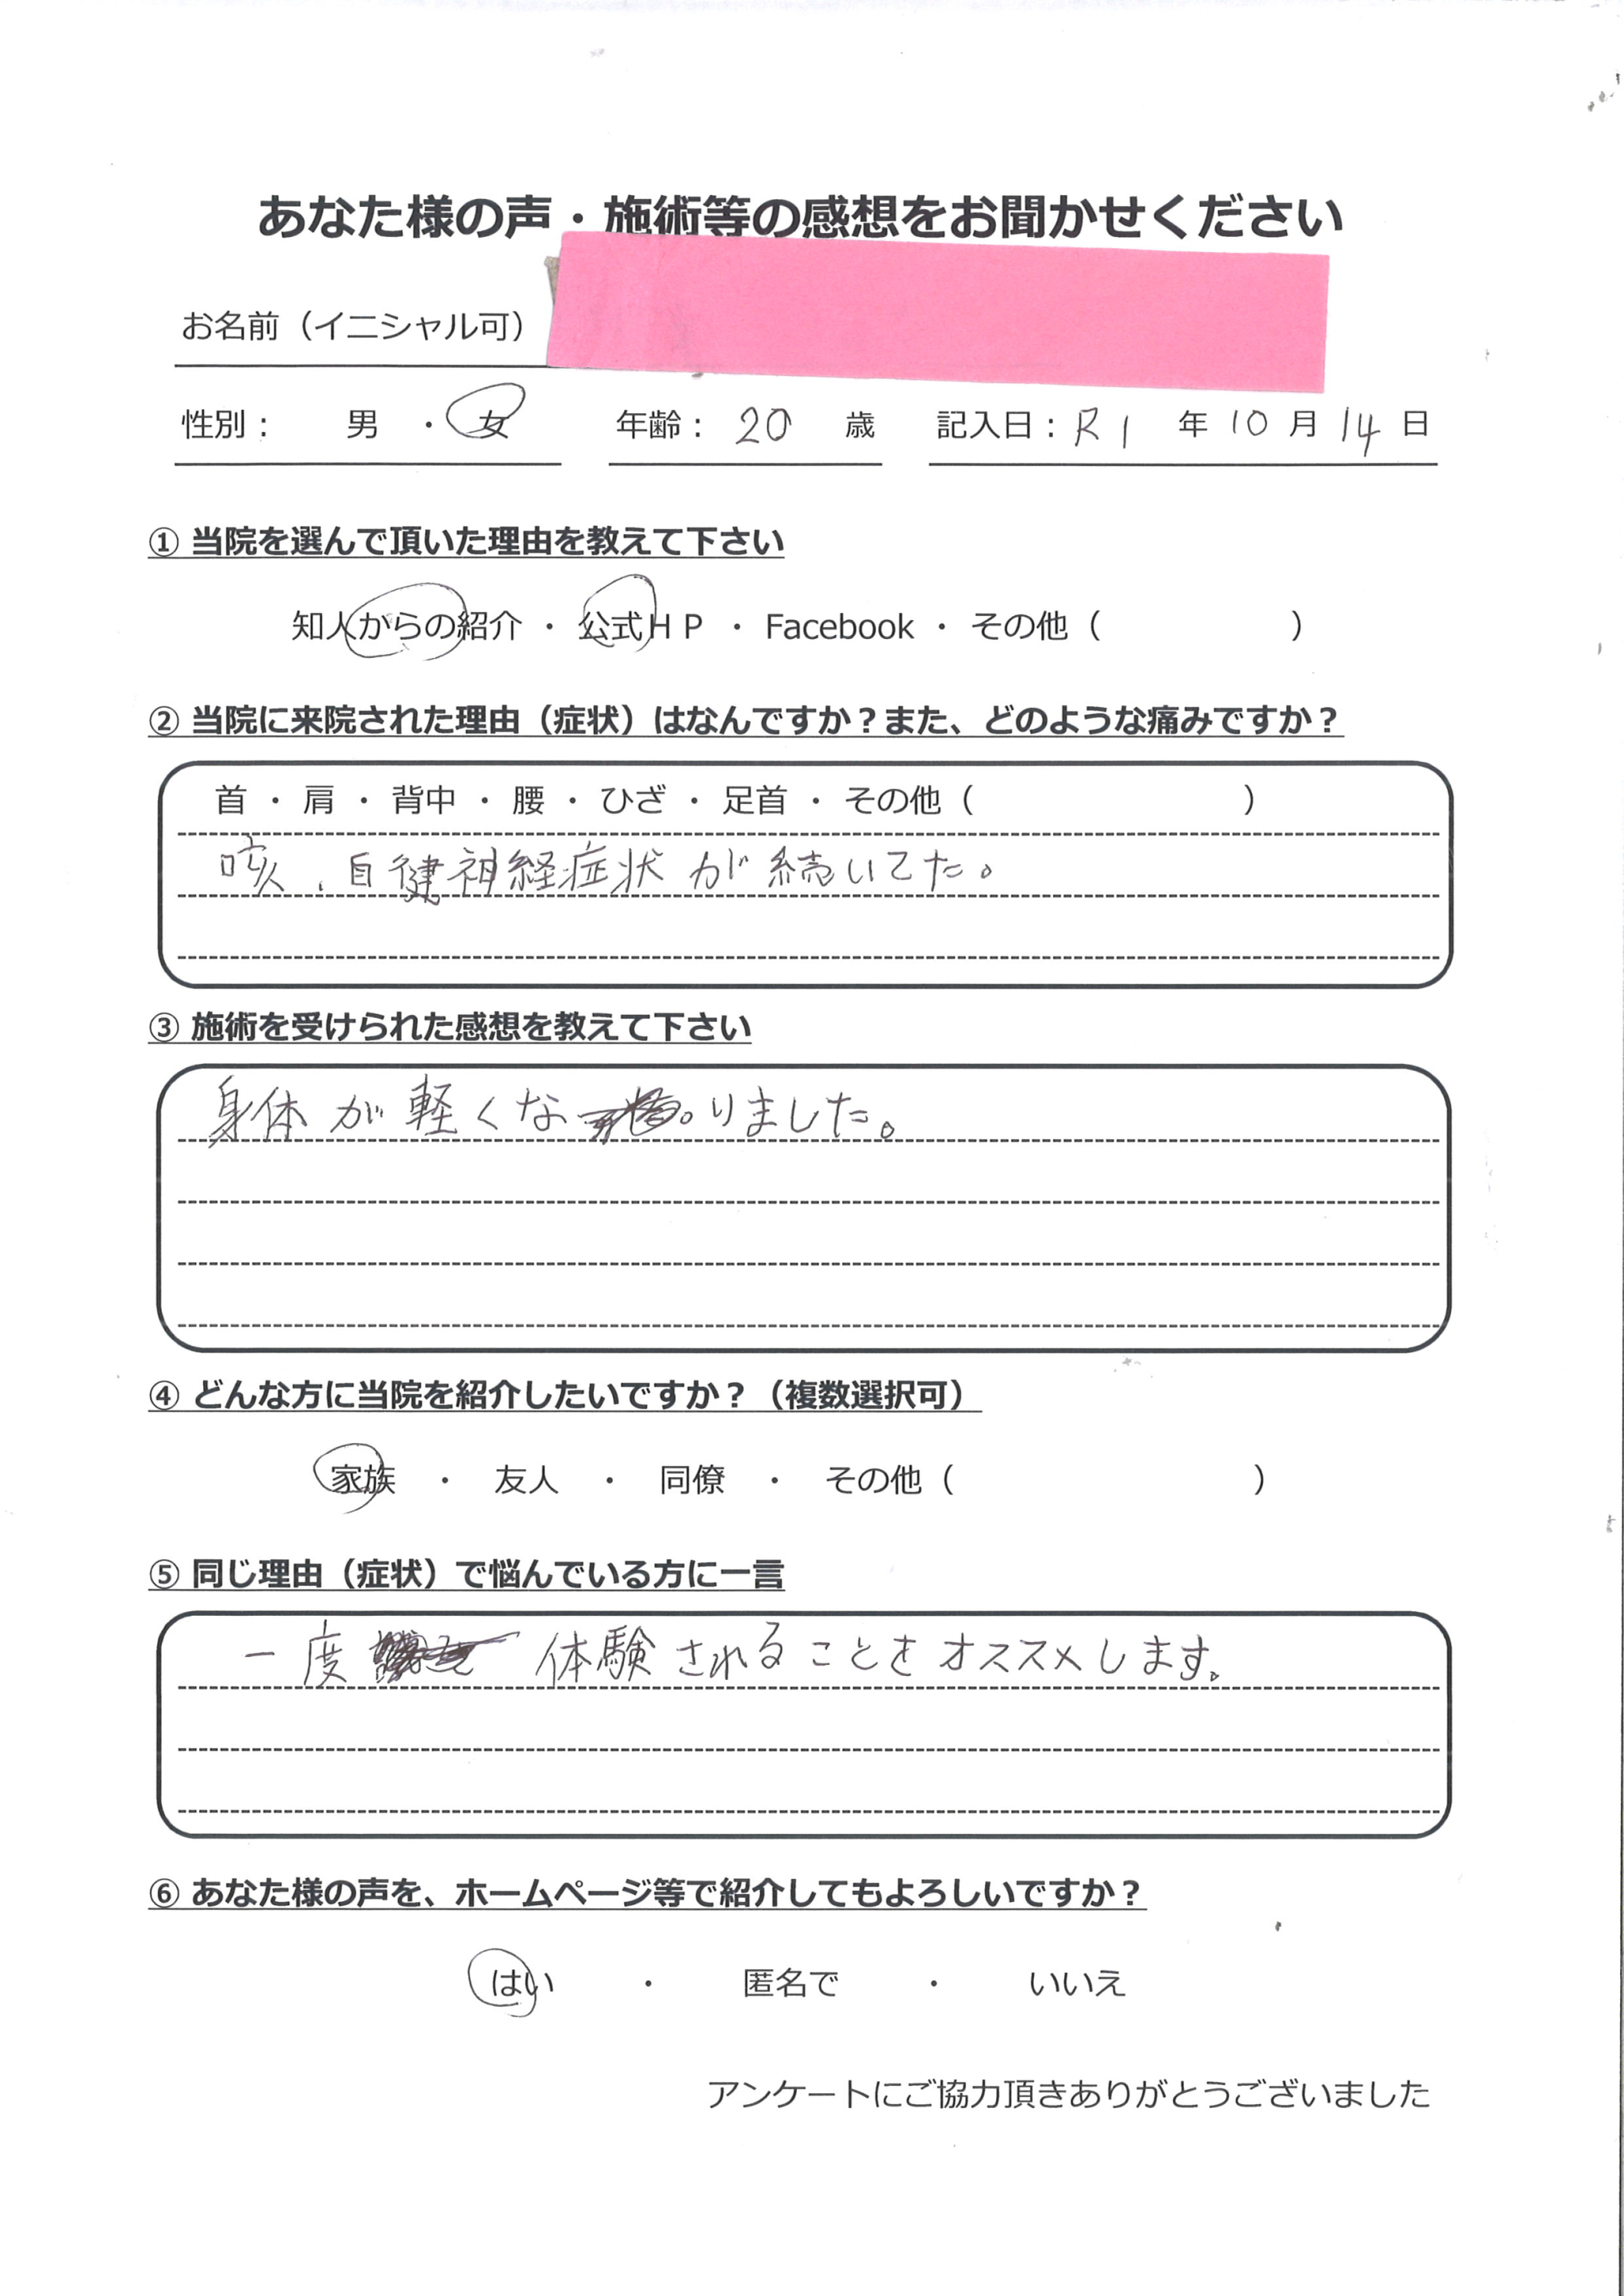 あなた様の声・施術等の感想をお聞かせください
お名前（イニシャル可）
性別： 男 ・ 女 年齢： 20 歳 記入日：R1 年 10 月 14 日
① 当院を選んで頂いた理由を教えて下さい
知人からの紹介 ・ 公式ＨＰ ・ Facebook ・ その他（ ）
② 当院に来院された理由（症状）はなんですか？また、どのような痛みですか？
首 ・ 肩 ・ 背中 ・ 腰 ・ ひざ ・ 足首 ・ その他（ ）
咳、自健神経症状が続いてた。
③ 施術を受けられた感想を教えて下さい
身体が軽くなりました。
④ どんな方に当院を紹介したいですか？（複数選択可）
家族 ・ 友人 ・ 同僚 ・ その他（ ）
⑤ 同じ理由（症状）で悩んでいる方に一言
一度 体験されることをオススメします。
⑥ あなた様の声を、ホームページ等で紹介してもよろしいですか？
はい ・ 匿名で ・ いいえ
アンケートにご協力頂きありがとうございました